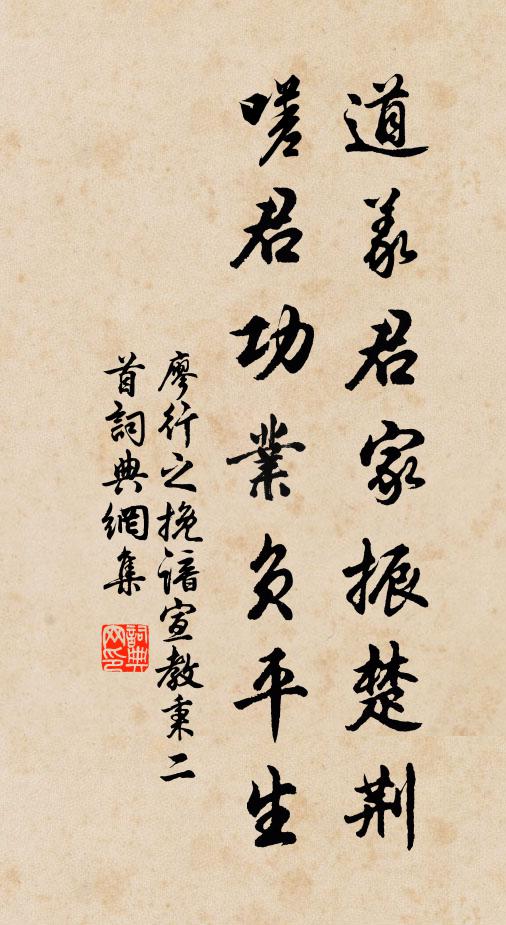 道義君家振楚荆
嗟君功業負平生
廖行之挽諳宣教秉二
首詞典網集
詞典
网印